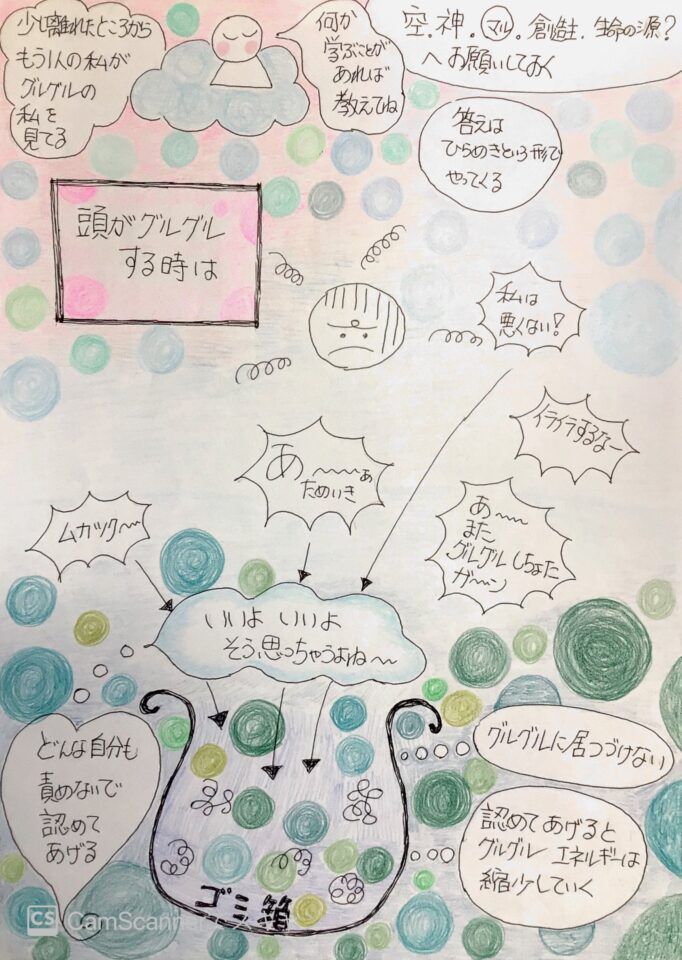 少し離れたところから
もう1人の私が
グルグルの
私を
見てる
何か
学ぶことが
あれば
教えてね
空.神.マル.創造主.生命の源?
へお願いしておく
答えは
ひらめきという形で
やってくる
頭がグルグル
する時は
私は
悪くない!
イライラするなー
あ〜〜〜ぁ
ためいき
ムカツク〜
あ〜〜
また
グルグルしちょた
ガ〜ン
いいよ いいよ
そう思っちゃうよね〜
どんな自分も
責めないで
認めて
あげる
グルグルに居つづけない
認めてあげると
グルグル エネルギーは
縮少していく
ゴミ箱
CS CamScanner